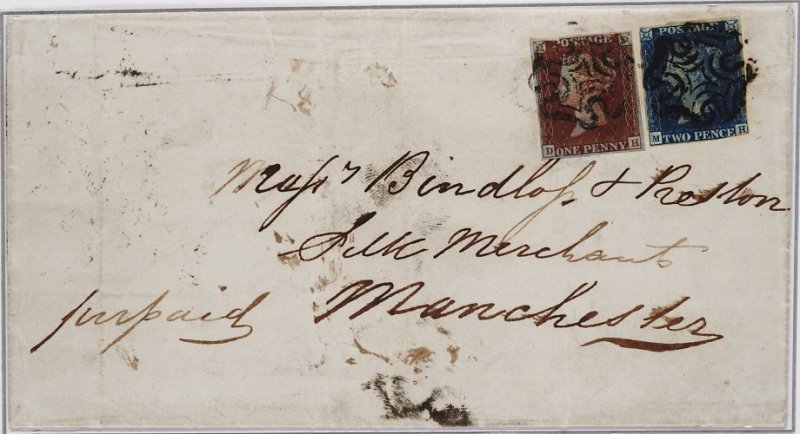 POSTAGE
ONE PENNY
D H
POSTAGE
TWO PENCE
M H
Messrs Bindloss & Preston
Silk Merchants
Manchester
prepaid